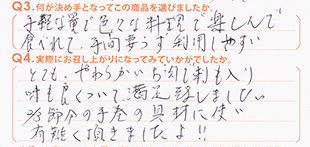 Q3.何が決め手となってこの商品を選びましたか。
手軽な量で色々な料理で楽しんで
食べれて、手間要らず利用しやすい
Q4.実際にお召し上がりになってみていかがでしたか。
とても、やわらかいお肉で刺も入り
味も良くついて、満足致しました
2/3節分の手巻の具材に使い
有難く頂きましたよ!!